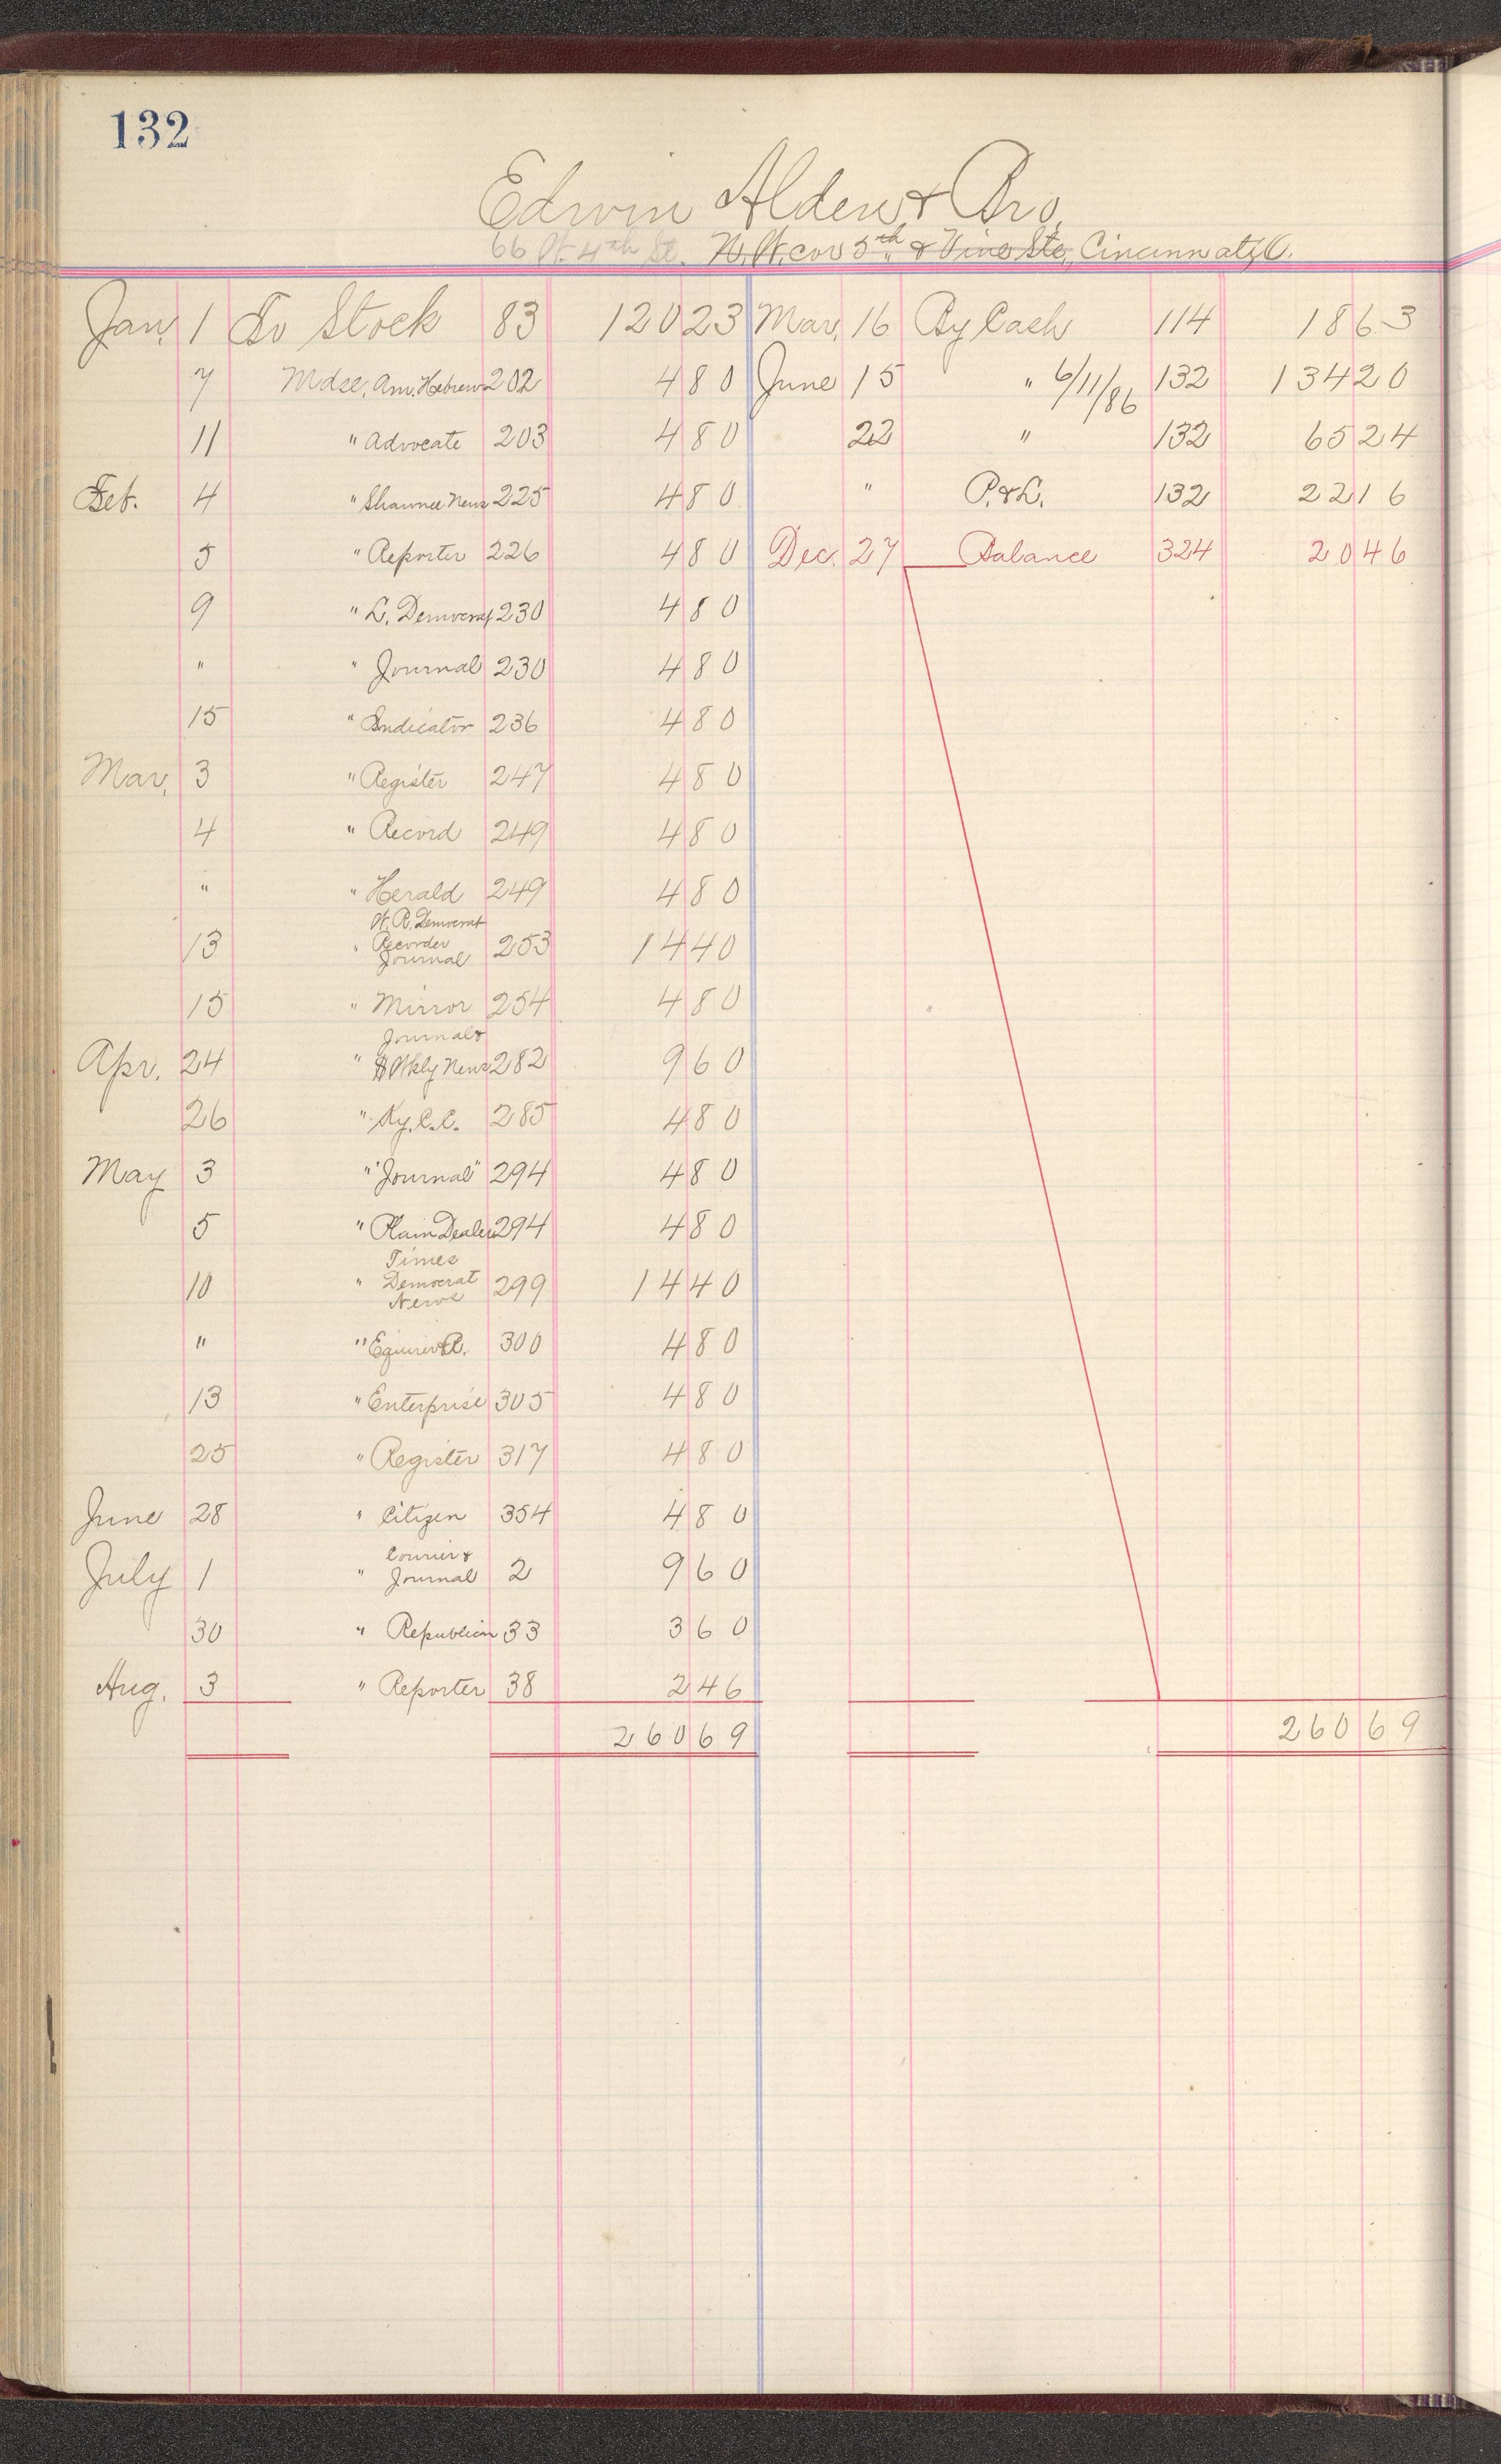 132
Edwin Alden & Bro.
66 W. 4th St. N.W. cor 5th & Vine Sts., Cincinnati, O.
Jan. 1 To Stock 83 120 23 Mar. 16 By Cash 114 18 63
7 Mdse. Am. Hebrew 202 4 80 June 15 " 6/11/86 132 134 20
11 " Advocate 203 4 80 22 " 132 65 24
Feb. 4 " Shawnee News 225 4 80 " P. & L. 132 22 16
5 " Reporter 226 4 80 Dec. 27 Balance 324 20 46
9 " L. Democrat 230 4 80
" " Journal 230 4 80
15 " Indicator 236 4 80
Mar. 3 " Register 247 4 80
4 " Record 249 4 80
" " Herald 249 4 80
W. R. Democrat
13 " Recorder 253 14 40
Journal
15 " Mirror 254 4 80
Journal &
Apr. 24 " Wkly News 282 9 60
26 " Ky. C. C. 285 4 80
May 3 " "Journal" 294 4 80
5 " Plain Dealer 294 4 80
Times
10 " Democrat 299 14 40
News
" " 300 4 80
13 " Enterprise 305 4 80
25 " Register 317 4 80
June 28 " Citizen 354 4 80
Courier &
July 1 " Journal 2 9 60
30 " Republican 33 3 60
Aug. 3 " Reporter 38 2 46
260 69 260 69